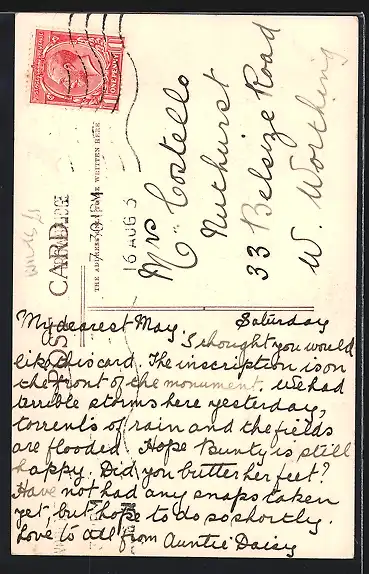 POSTAGE & REVENUE
ONE PENNY
CARD
THE ADDRESS ONLY TO BE WRITTEN HERE
16 AUG 3
Mrs Costello
Nuthurst
33 Belsize Road
W. Worthing
My dearest May, Saturday
I thought you would
like this card. The inscription is on
the front of the monument. We had
terrible storms here yesterday,
torrents of rain and the fields
are flooded. Hope Bunty is still
happy. Did you butter her feet?
Have not had any snaps taken
yet, but hope to do so shortly.
Love to all from Auntie Daisy